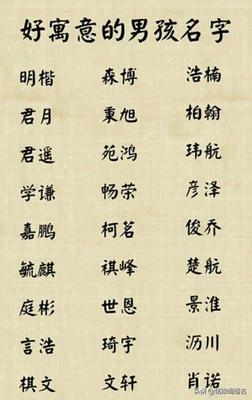 好寓意的男孩名字
明楷 森博 浩楠
君月 秉旭 柏翰
君遥 苑鸿 玮航
学谦 畅荣 彦泽
嘉鹏 柯茗 俊乔
毓麒 祺峰 楚航
庭彬 世恩 景淮
言浩 琦宇 沥川
棋文 文轩 肖诺